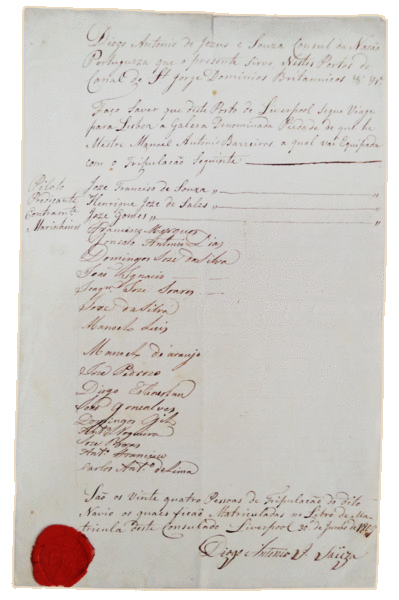 Diogo Antonio de Jezus e Souza Consul da Nação
Portugueza que a prezente sirvo, Nestes Portos do
Canal de St Jorge Dominios Britannicos
Faço Saver que deste Porto de Liverpool Segue Viage
para Lisboa a Galera Denominada Piedade de que he
Mestre Manoel Antonio Barreiros a qual vai Equipada
com a Tripulação Seguinte
Piloto Joze Francisco de Souza "
Praticante Henrique Joze de Salles "
Contramte Joze Gomes "
Marinheiros Francisco Marques
Goncalo Antonio Dias
Domingos Joze da Silva
Joaõ Ignacio
Joaqm Joze Soares
Joze da Silva
Manoel Luis
Manoel de araujo
Joze Pedrozo
Diogo
Joze Goncalves
Domingos Gil
Anto Nogueira
Joze
Anto Francisco
Carlos Anto de Lima
São os Vinte quatro Pessoas de Tripulação do dito
Navio os quaes ficão Matriculadas no Libro da Ma-
tricula deste Consulado Liverpool 20 de Junho de
Diogo Antonio J. Saüza